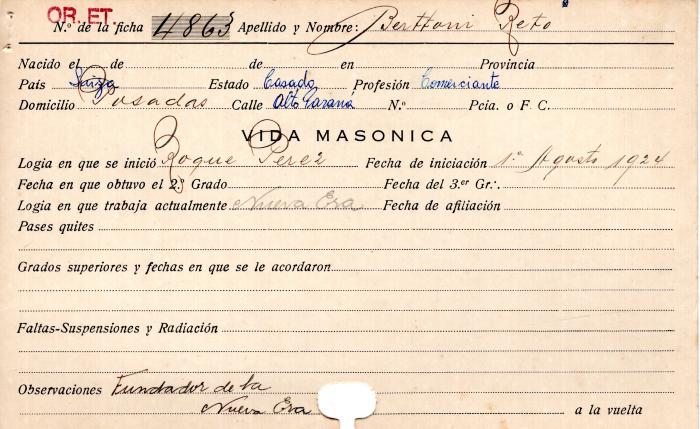 OR. ET.
N.º de la ficha 4863 Apellido y Nombre: Berttoni Reto
Nacido el de de en Provincia
País Suiza Estado Casado Profesión Comerciante
Domicilio Posadas Calle Alto Paraná N.º Pcia. o F. C.
VIDA MASONICA
Logia en que se inició Roque Perez Fecha de iniciación 1º Agosto 1924
Fecha en que obtuvo el 2º Grado Fecha del 3.er Gr∴
Logia en que trabaja actualmente Nueva Era Fecha de afiliación
Pases quites
Grados superiores y fechas en que se le acordaron
Faltas-Suspensiones y Radiación
Observaciones Fundador de la
Nueva Era a la vuelta